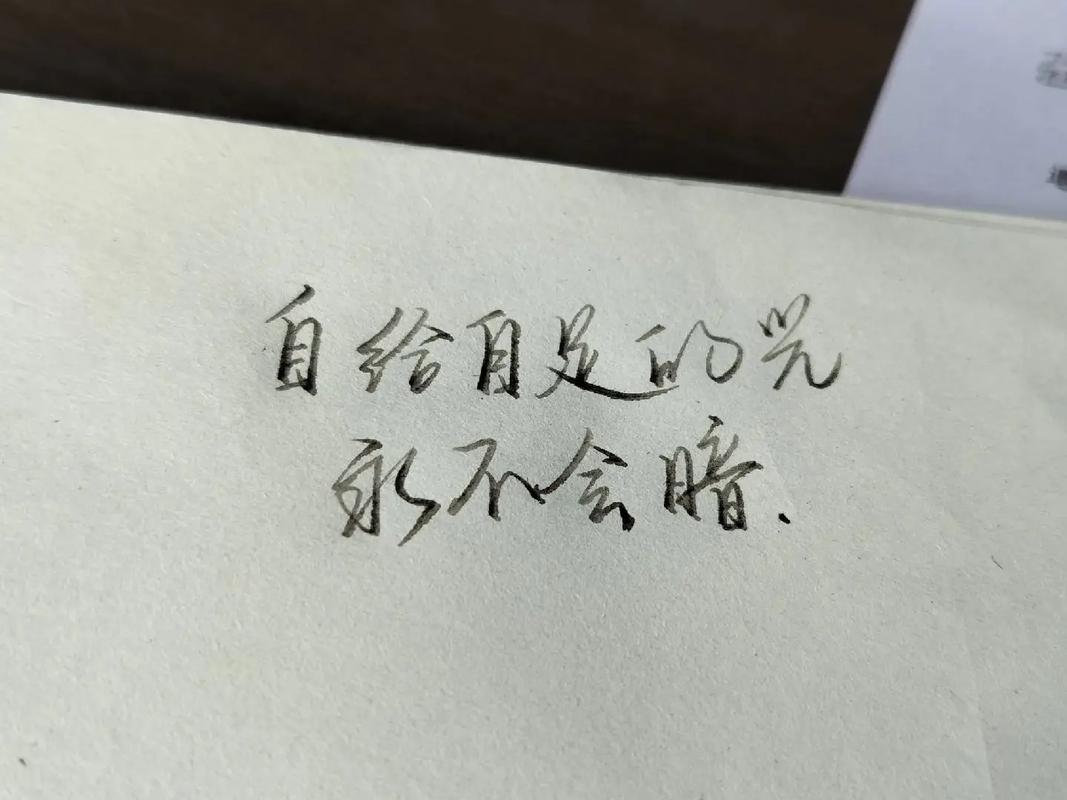 自给自足的光
永不会暗.